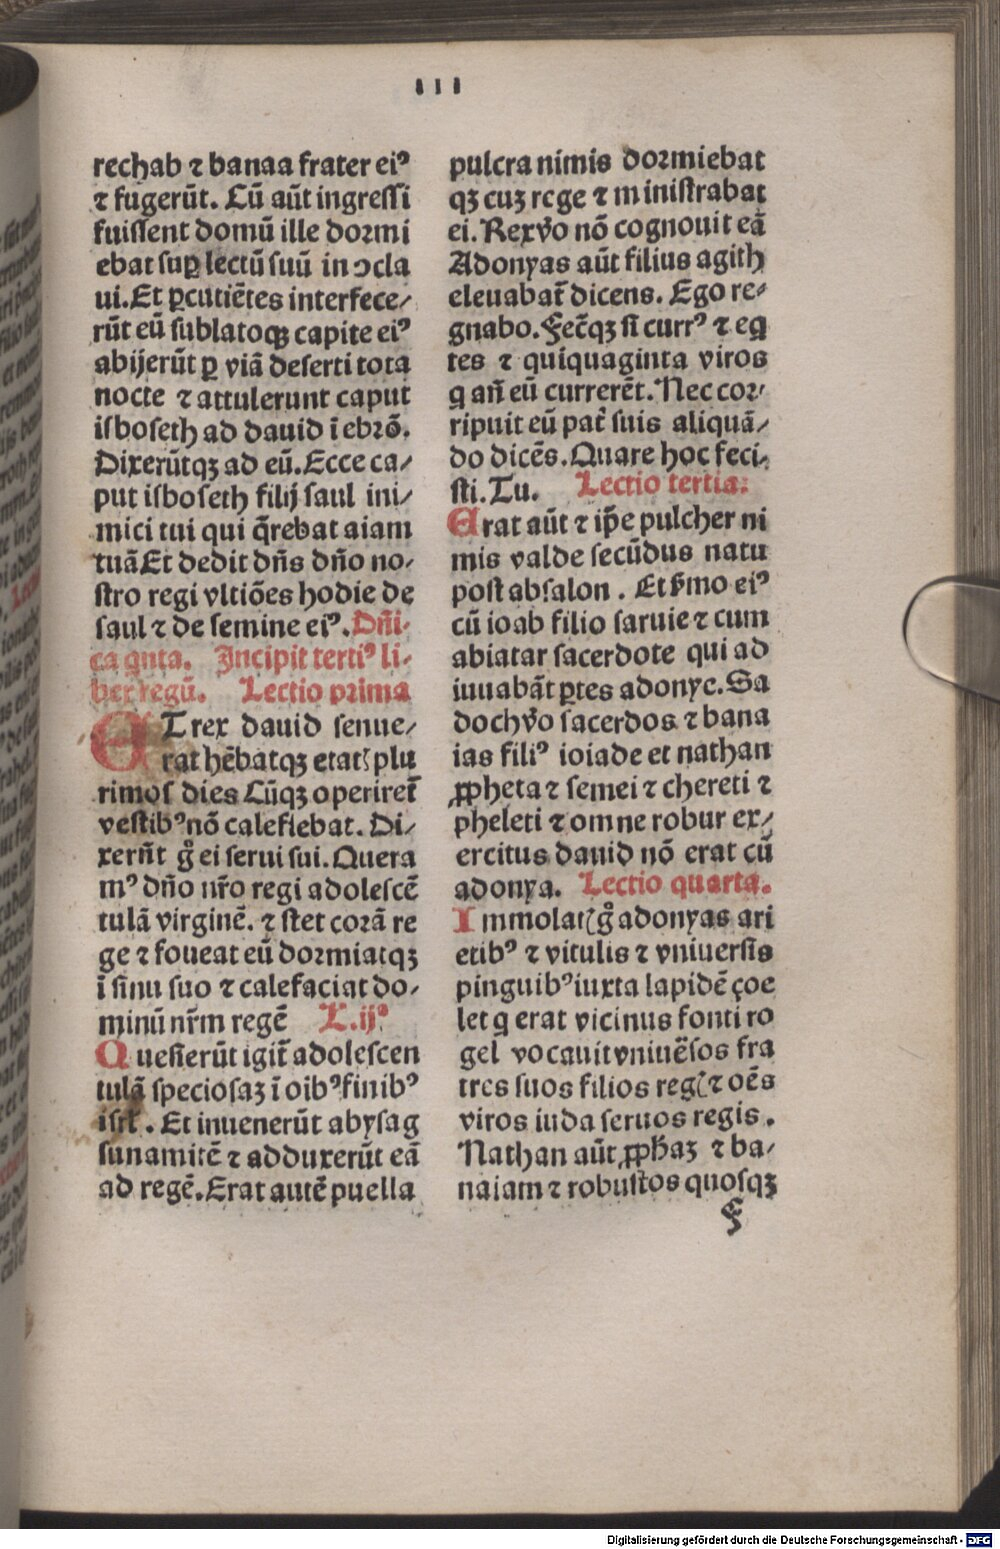 III
rechab ⁊ banaa frater eiꝰ
⁊ fugerūt. Cū aūt ingressi
fuissent domū ille dormi
ebat suꝑ lectū suū in ↄcla
ui. Et ꝑcutiētes interfece⸗
rūt eū sublatoqꝫ capite eiꝰ
abijerūt ꝑ viā deserti tota
nocte ⁊ attulerunt caput
isboseth ad dauid ī ebrō.
Dixerūtqꝫ ad eū. Ecce ca⸗
put isboseth filij saul ini⸗
mici tui qui q̄rebat aiam
tuā Et dedit dn̄s dn̄o no⸗
stro regi vltiōes hodie de
saul ⁊ de semine eiꝰ. Dn̄i⸗
ca qnta. Incipit tertiꝰ li⸗
ber regū. Lectio prima
ET rex dauid senue⸗
rat hēbatqꝫ etatꝭ plu
rimos dies Cūqꝫ operiret̄
vestibꝰ nō calefiebat. Di⸗
xerūt gͦ ei serui sui. Quera
mꝰ dn̄o nr̄o regi adolescē
tulā virginē. ⁊ stet corā re
ge ⁊ foueat eū dormiatqꝫ
ī sinu suo ⁊ calefaciat do⸗
minū nr̄m regē L. ijᵃ
Quesierūt igit̄ adolescen
tulā speciosaꝫ ī oibꝰ finibꝰ
isrl̄. Et inuenerūt abysag
sunamitē ⁊ adduxerūt eā
ad regē. Erat autē puella
pulcra nimis dormiebat
qꝫ cuꝫ rege ⁊ ministrabat
ei. Rex v̄o nō cognouit eā
Adonyas aūt filius agith
eleuabat̄ dicens. Ego re⸗
gnabo. Fec̄qꝫ si currꝰ ⁊ eq
tes ⁊ quiquaginta viros
q an̄ eū currerēt. Nec cor⸗
ripuit eū pat̄ suis aliquā⸗
do dicēs. Quare hoc feci⸗
sti. Tu. Lectio tertia.
Erat aūt ⁊ ip̄e pulcher ni
mis valde secūdus natu
post absalon. Et s̄mo eiꝰ
cū ioab filio saruie ⁊ cum
abiatar sacerdote qui ad
iuuabāt ꝑtes adonye. Sa
doch v̄o sacerdos ⁊ bana
ias filiꝰ ioiade et nathan
ꝓpheta ⁊ semei ⁊ chereti ⁊
pheleti ⁊ omne robur ex⸗
ercitus dauid nō erat cū
adonya. Lectio quarta.
Immolatꝭ gͦ adonyas ari
etibꝰ ⁊ vitulis ⁊ vniuersis
pinguibꝰ iuxta lapidē çoe
let q erat vicinus fonti ro
gel vocauit vniuēsos fra
tres suos filios regꝭ ⁊ oēs
viros iuda seruos regis.
Nathan aūt ꝓphaꝫ ⁊ ba⸗
naiam ⁊ robustos quosqꝫ
F
Digitalisierung gefördert durch die Deutsche Forschungsgemeinschaft - DFG